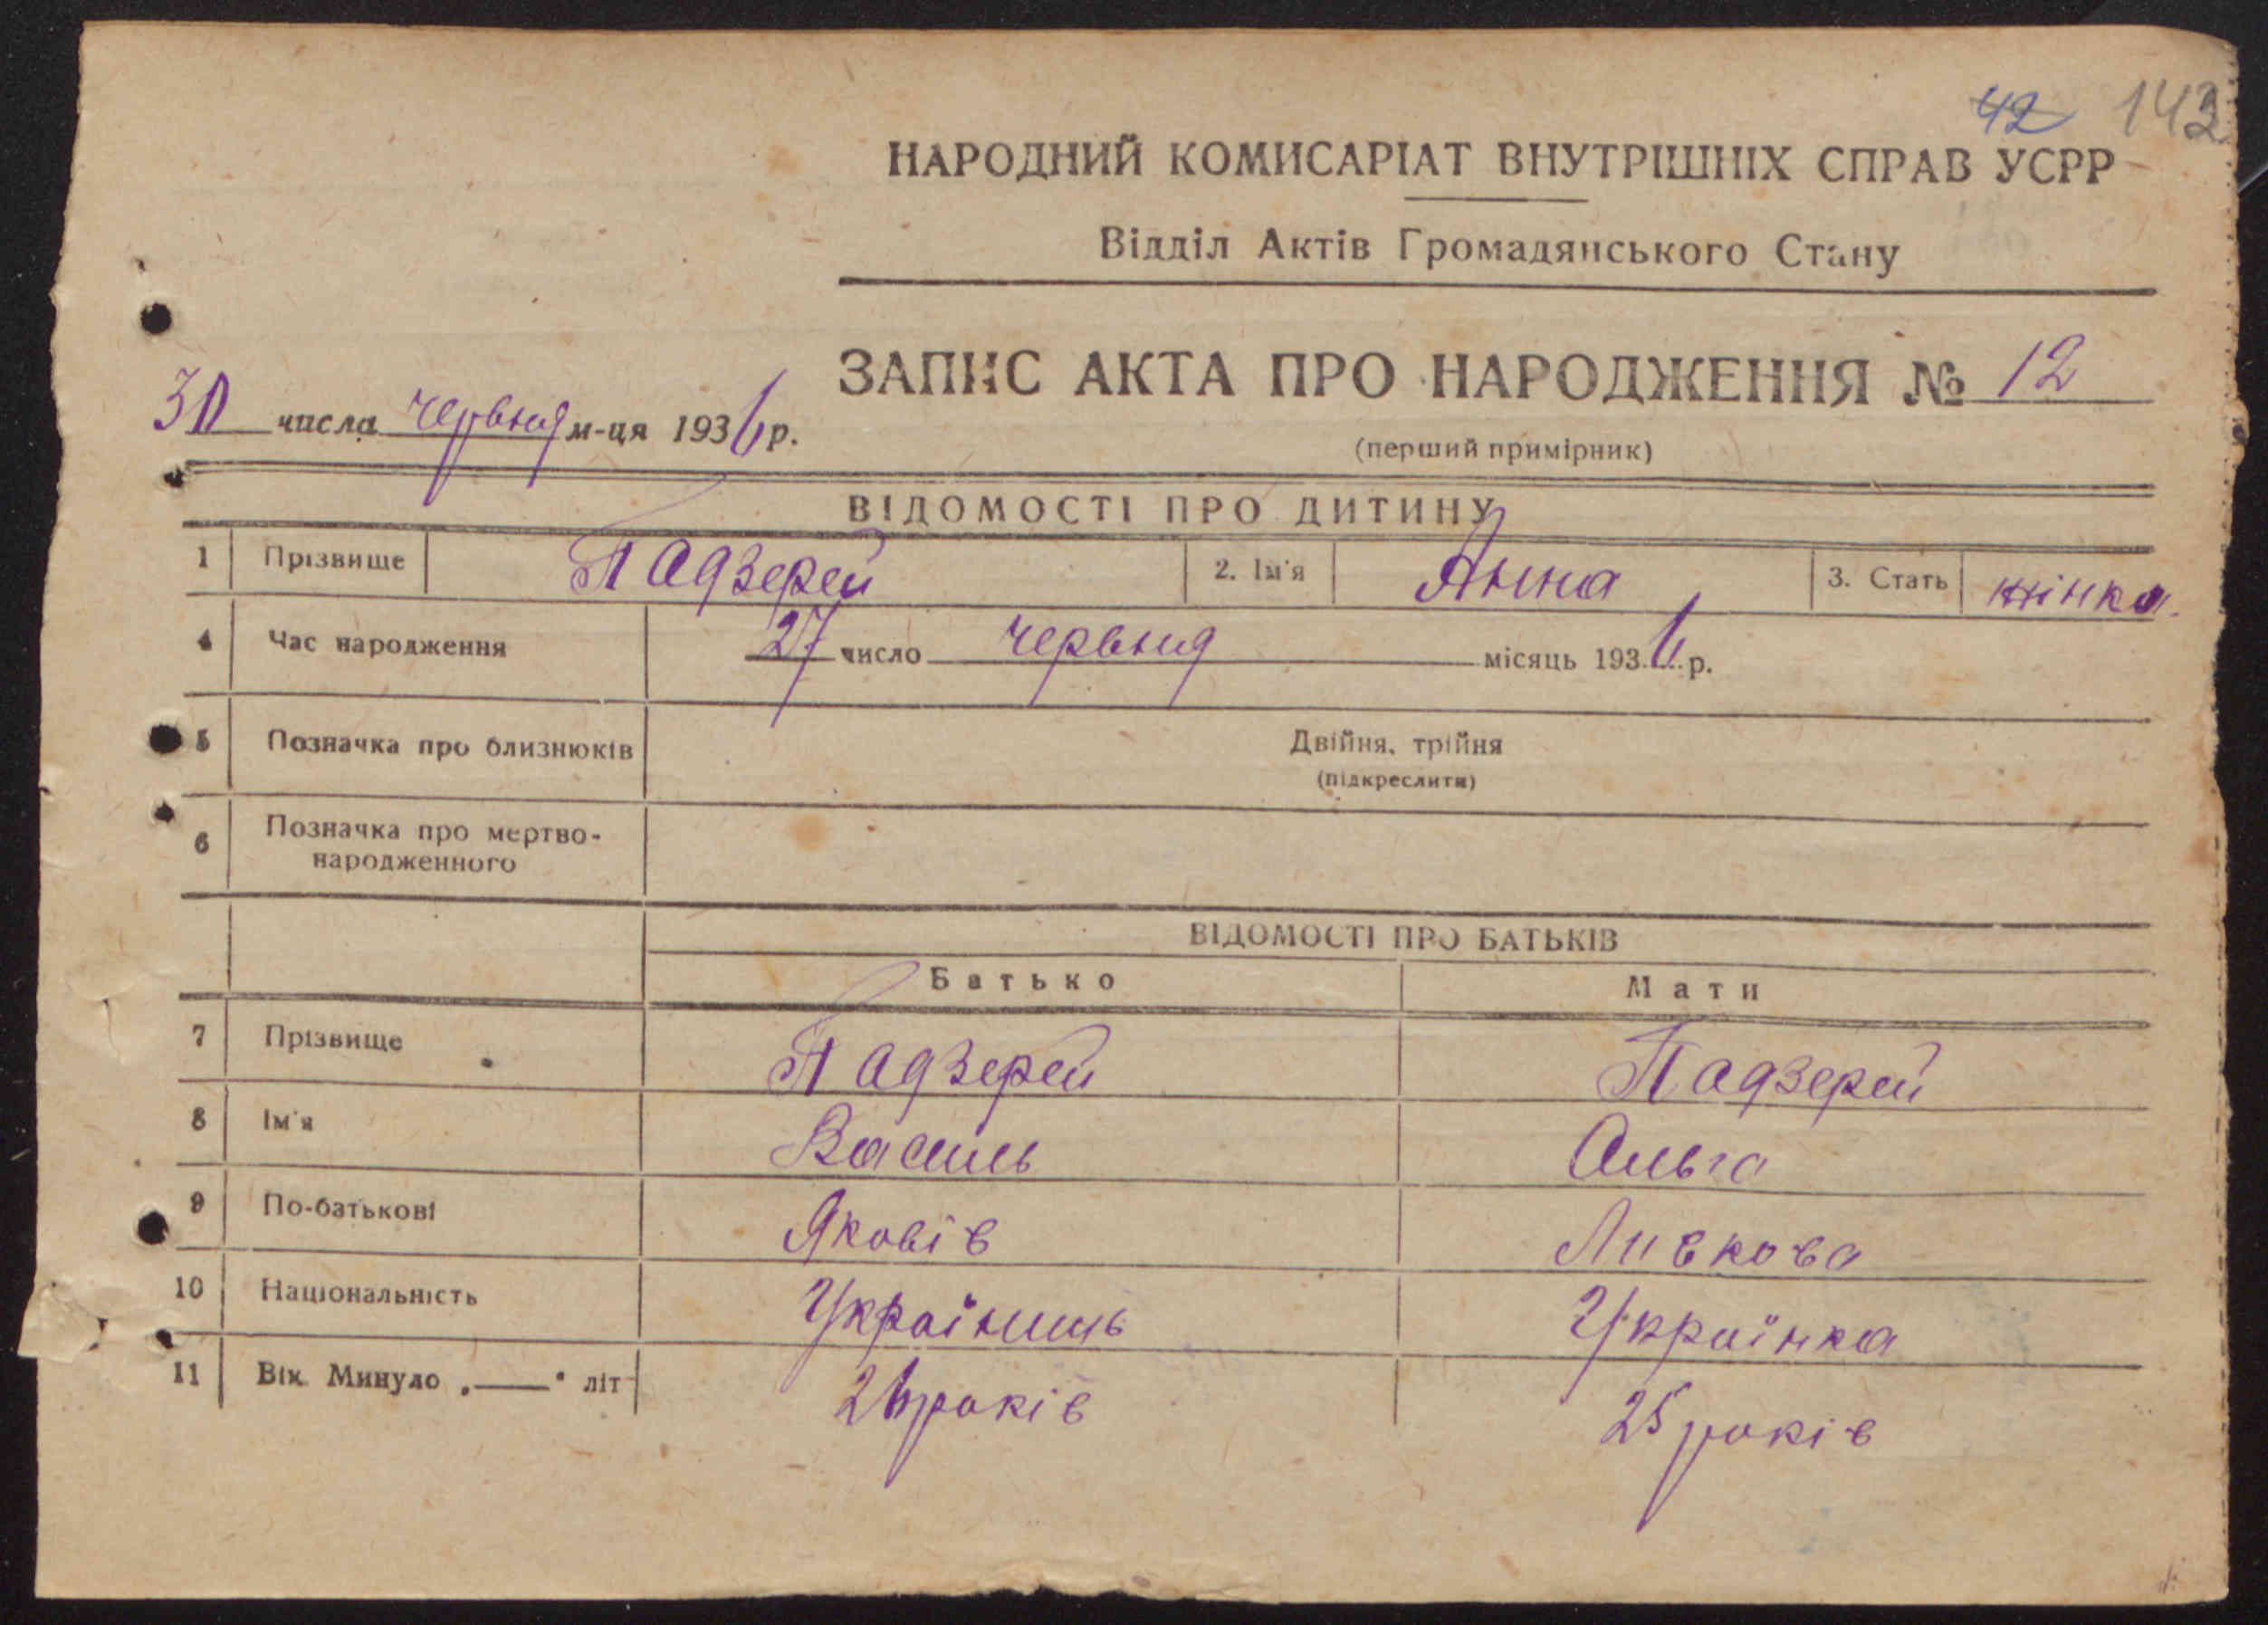 42 143
НАРОДНИЙ КОМИСАРІАТ ВНУТРІШНІХ СПРАВ УСРР
Відділ Актів Громадянського Стану
ЗАПИС АКТА ПРО НАРОДЖЕННЯ № 12
30 числа червня м-ця 1936 р.
(перший примірник)
ВІДОМОСТІ ПРО ДИТИНУ
1 Прізвище Падзерей 2. Ім'я Анна 3. Стать жінка
4 Час народження 27 число червня місяць 1936 р.
5 Позначка про близнюків Двійня, трійня
(підкреслити)
6 Позначка про мертво-
народженного
ВІДОМОСТІ ПРО БАТЬКІВ
Батько Мати
7 Прізвище Падзерей Падзерей
8 Ім'я Василь Ольга
9 По-батькові Яковів Ливкова
10 Національність Українець Українка
11 Вік Минуло „—“ літ 26 років 25 років